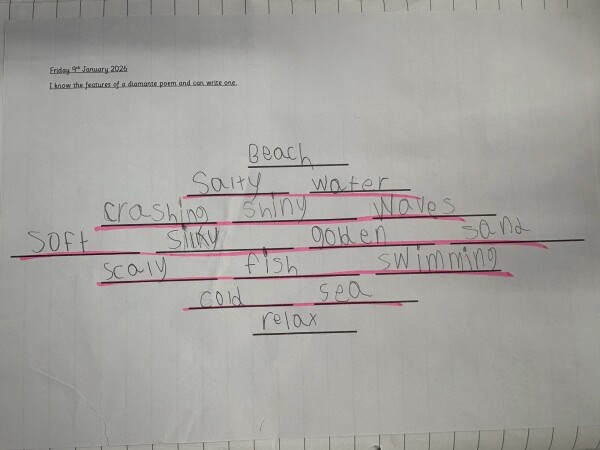 Friday 9th January 2026
I know the features of a diamante poem and can write one.
Beach
Salty water
crashing shiny Waves
Soft silky golden sand
scaly fish swimming
cold sea
relax